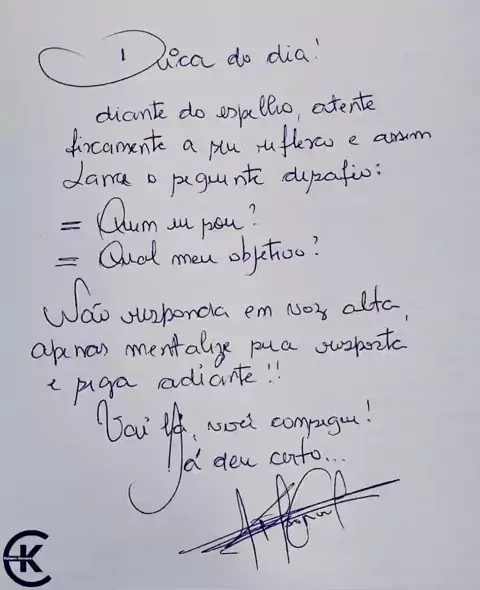 Dica do dia!
diante do espelho, atente
fixamente a seu reflexo e assim
lance o seguinte desafio:
= Quem eu sou?
= Qual meu objetivo?
Não responda em voz alta,
apenas mentalize sua resposta
e siga adiante!!
Vai lá, você consegue!
Já deu certo...
K